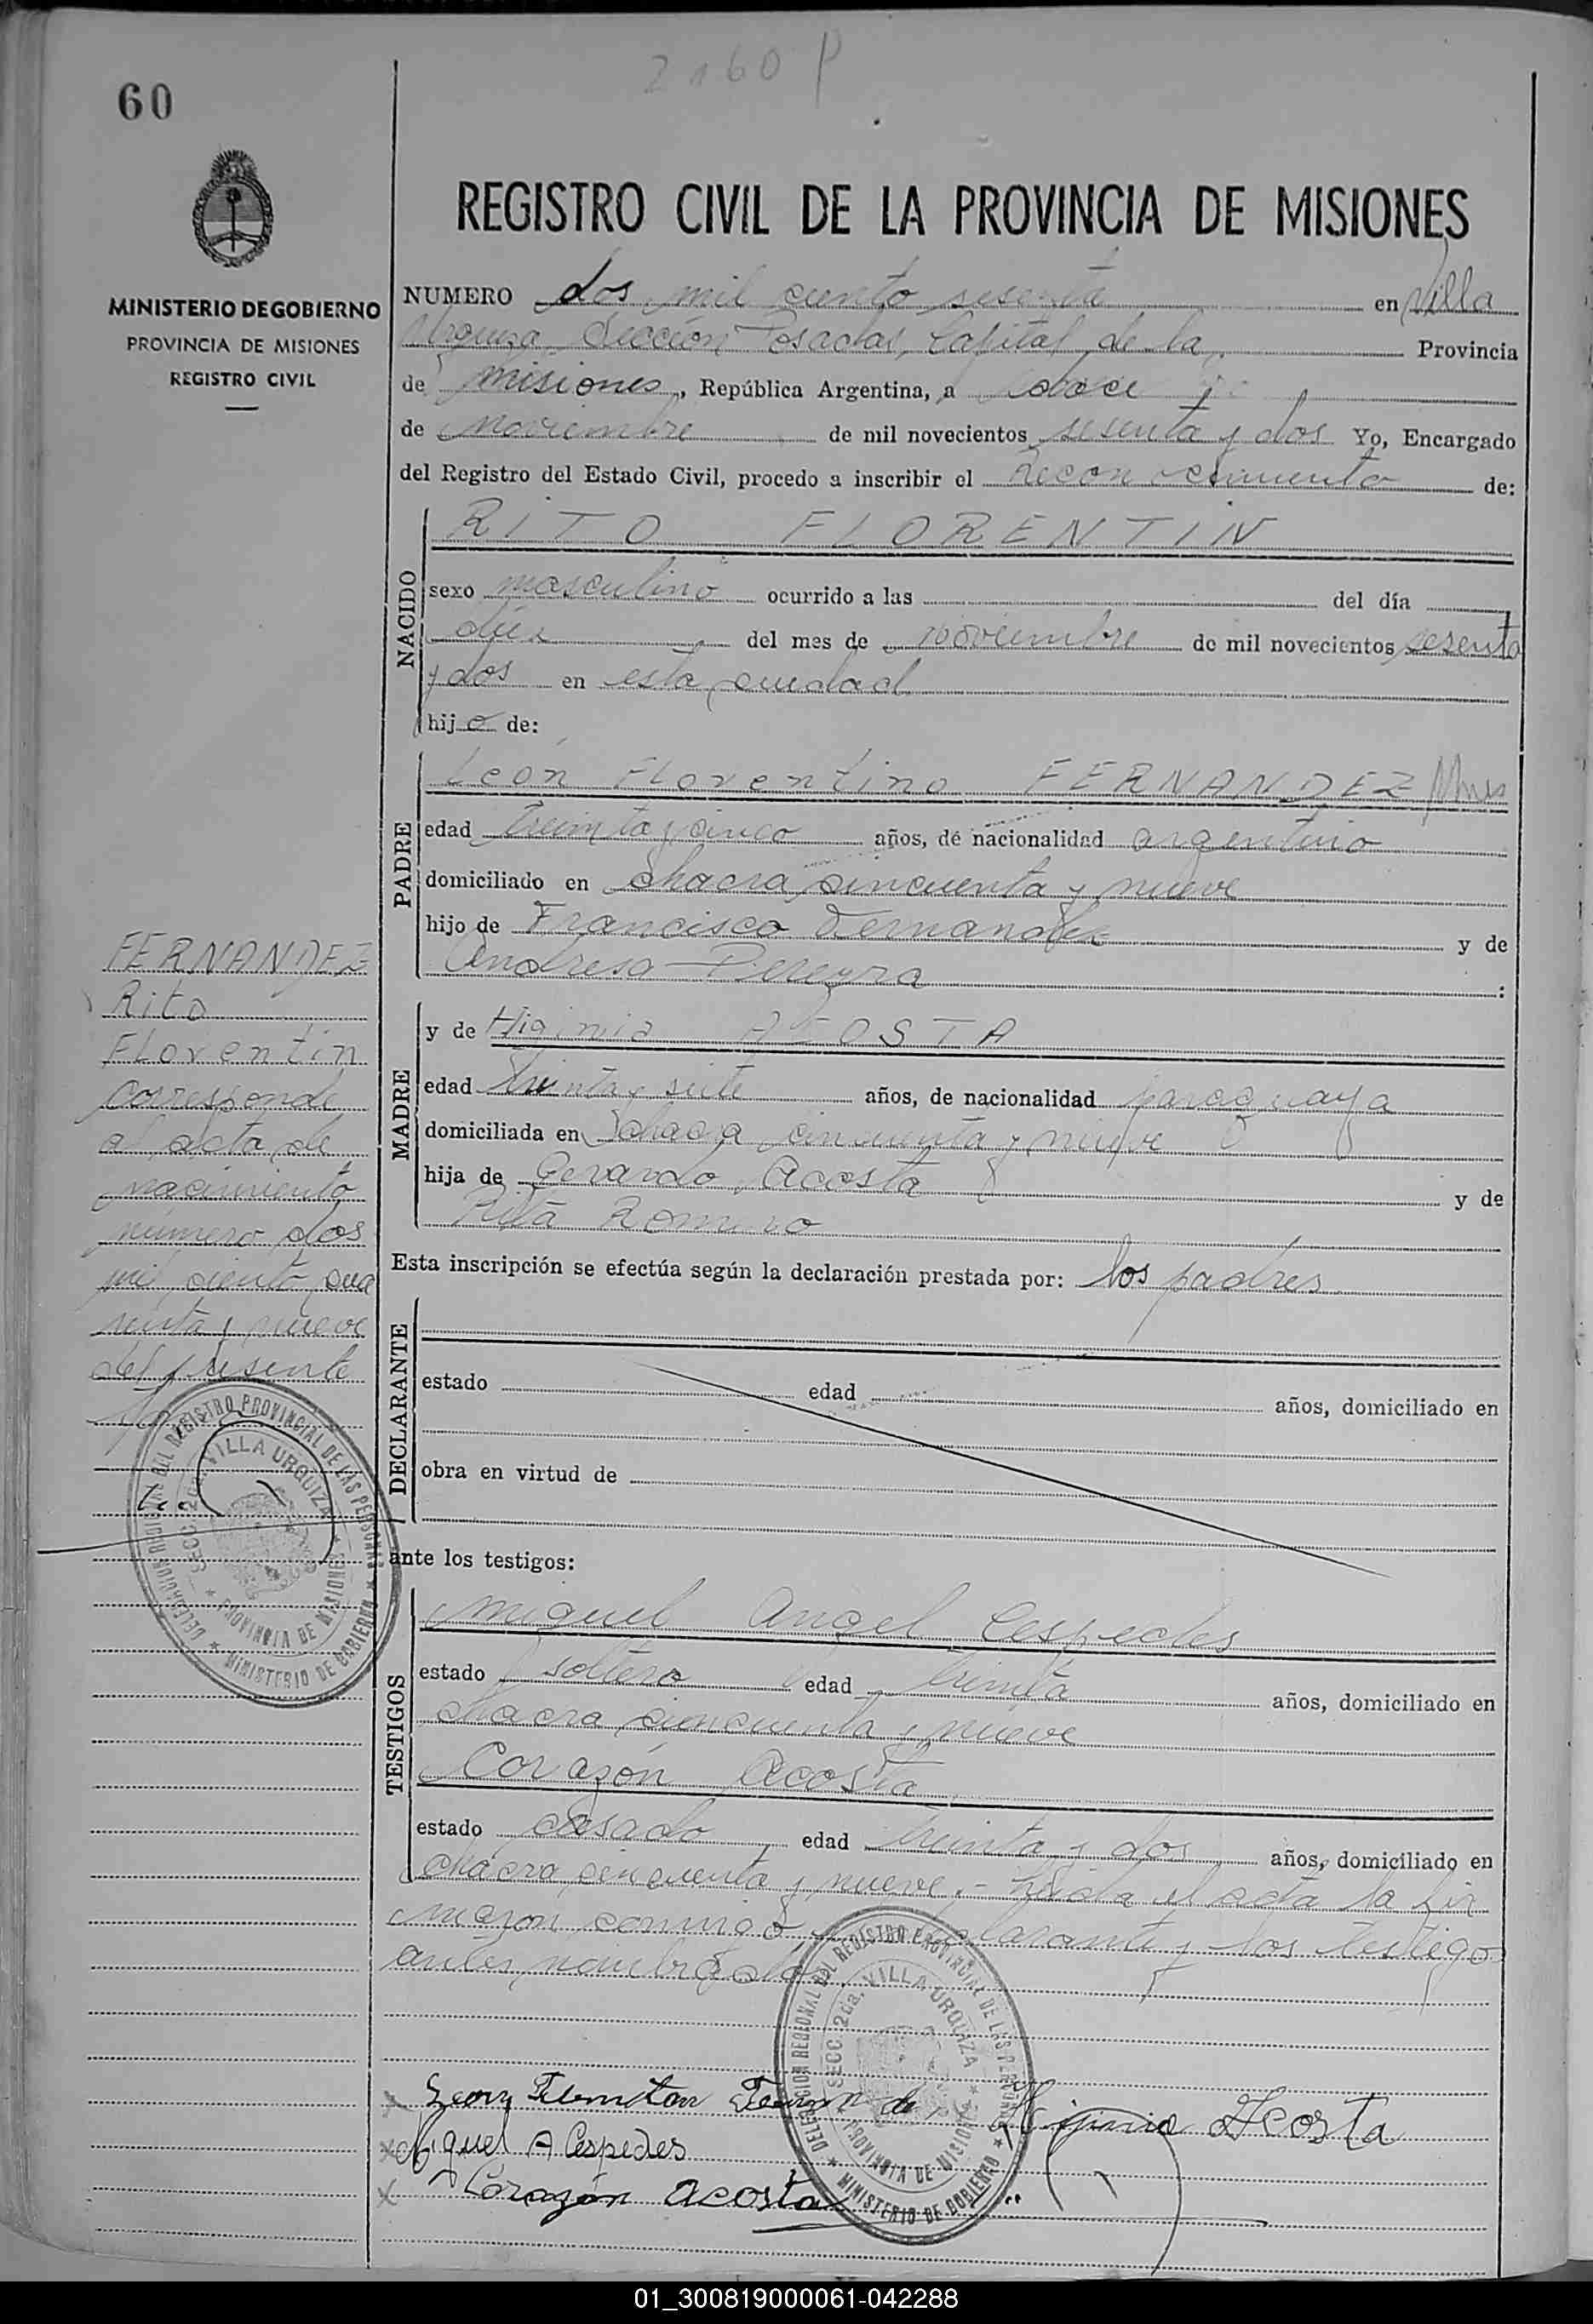 2160 P
60
REGISTRO CIVIL DE LA PROVINCIA DE MISIONES
MINISTERIO DE GOBIERNO
PROVINCIA DE MISIONES
REGISTRO CIVIL
NUMERO dos mil ciento sesenta en Villa
Urquiza Sección Posadas, Capital de la Provincia
de Misiones, República Argentina, a doce
de noviembre de mil novecientos sesenta y dos Yo, Encargado
del Registro del Estado Civil, procedo a inscribir el Reconocimiento de:
NACIDO
RITO FLORENTIN
sexo masculino ocurrido a las del día
diez del mes de noviembre de mil novecientos sesenta
y dos en esta ciudad
hijo de:
PADRE
León Florentino FERNANDEZ
edad treinta y cinco años, de nacionalidad argentino
domiciliado en chacra cincuenta y nueve
hijo de Francisco Fernandez y de
Andresa Pereyra :
MADRE
y de Higinia ACOSTA
edad treinta y siete años, de nacionalidad paraguaya
domiciliada en chacra cincuenta y nueve
hija de Gerardo Acosta y de
Rita Romero
Esta inscripción se efectúa según la declaración prestada por: los padres
DECLARANTE
estado edad años, domiciliado en
obra en virtud de
ante los testigos:
TESTIGOS
Miguel Angel Cespedes
estado soltero edad treinta años, domiciliado en
chacra cincuenta y nueve
Corazón Acosta
estado casado edad treinta y dos años, domiciliado en
chacra cincuenta y nueve.- Leída el acta la fir
maron conmigo declarante y los testigo
antes nombrados
León Florentin Fernande Higinia Acosta
Miguel A Cespedes
Corazón Acosta
FERNANDEZ
Rito
Florentin
Corresponde
al acta de
nacimiento
número dos
mil ciento cua
renta y nueve
del presente
DELEGACION REGIONAL DEL REGISTRO PROVINCIAL DE LAS PERSONAS
SECC. 2da. VILLA URQUIZA
PROVINCIA DE MISIONES
MINISTERIO DE GOBIERNO
DELEGACION REGIONAL DEL REGISTRO PROVINCIAL DE LAS PERSONAS
SECC. 2da. VILLA URQUIZA
PROVINCIA DE MISIONES
MINISTERIO DE GOBIERNO
01_300819000061-042288